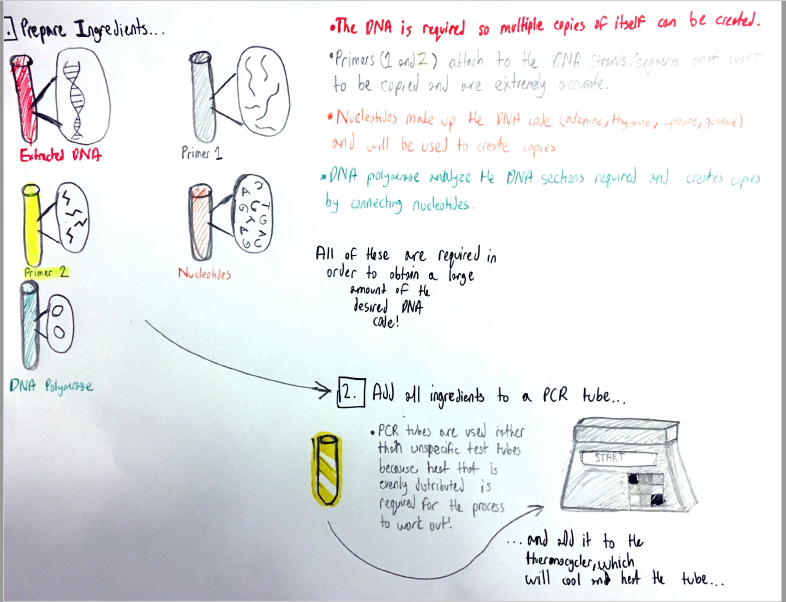 1. Prepare Ingredients...
Extracted DNA
Primer 1
Primer 2
Nucleotides
DNA Polymerase
•The DNA is required so multiple copies of itself can be created.
•Primers (1 and 2) attach to the DNA strands/segments that want
to be copied and are extremely accurate.
•Nucleotides make up the DNA code (adenine, thymine, cytosine, guanine)
and will be used to create copies
•DNA polymerase analyze the DNA sections required and creates copies
by connecting nucleotides.
All of these are required in
order to obtain a large
amount of the
desired DNA
code!
2. Add all ingredients to a PCR tube...
•PCR tubes are used rather
than unspecific test tubes
because heat that is
evenly distributed is
required for the process
to work out!
START
...and add it to the
thermocycler, which
will cool and heat the tube...